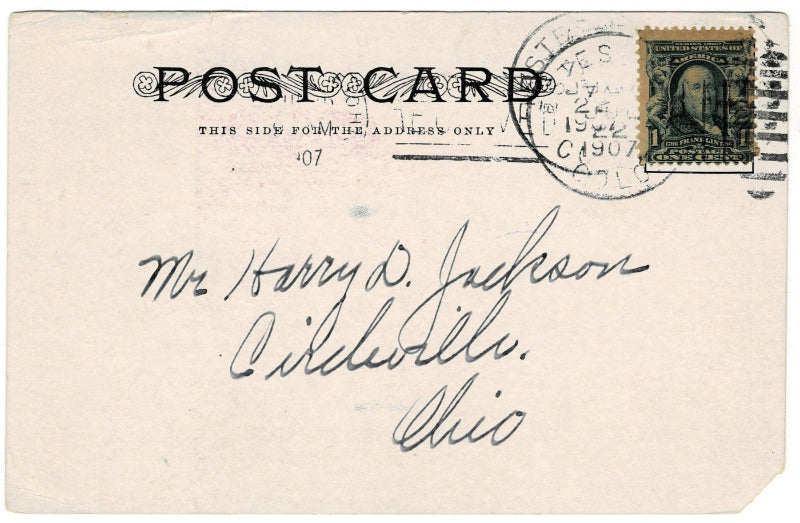 POST CARD
THIS SIDE FOR THE ADDRESS ONLY
'07
22
1907
COLO
SERIES 1902
UNITED STATES OF
AMERICA
1
FRANKLIN
POSTAGE
ONE CENT
Mr Harry D. Jackson
Circleville.
Ohio